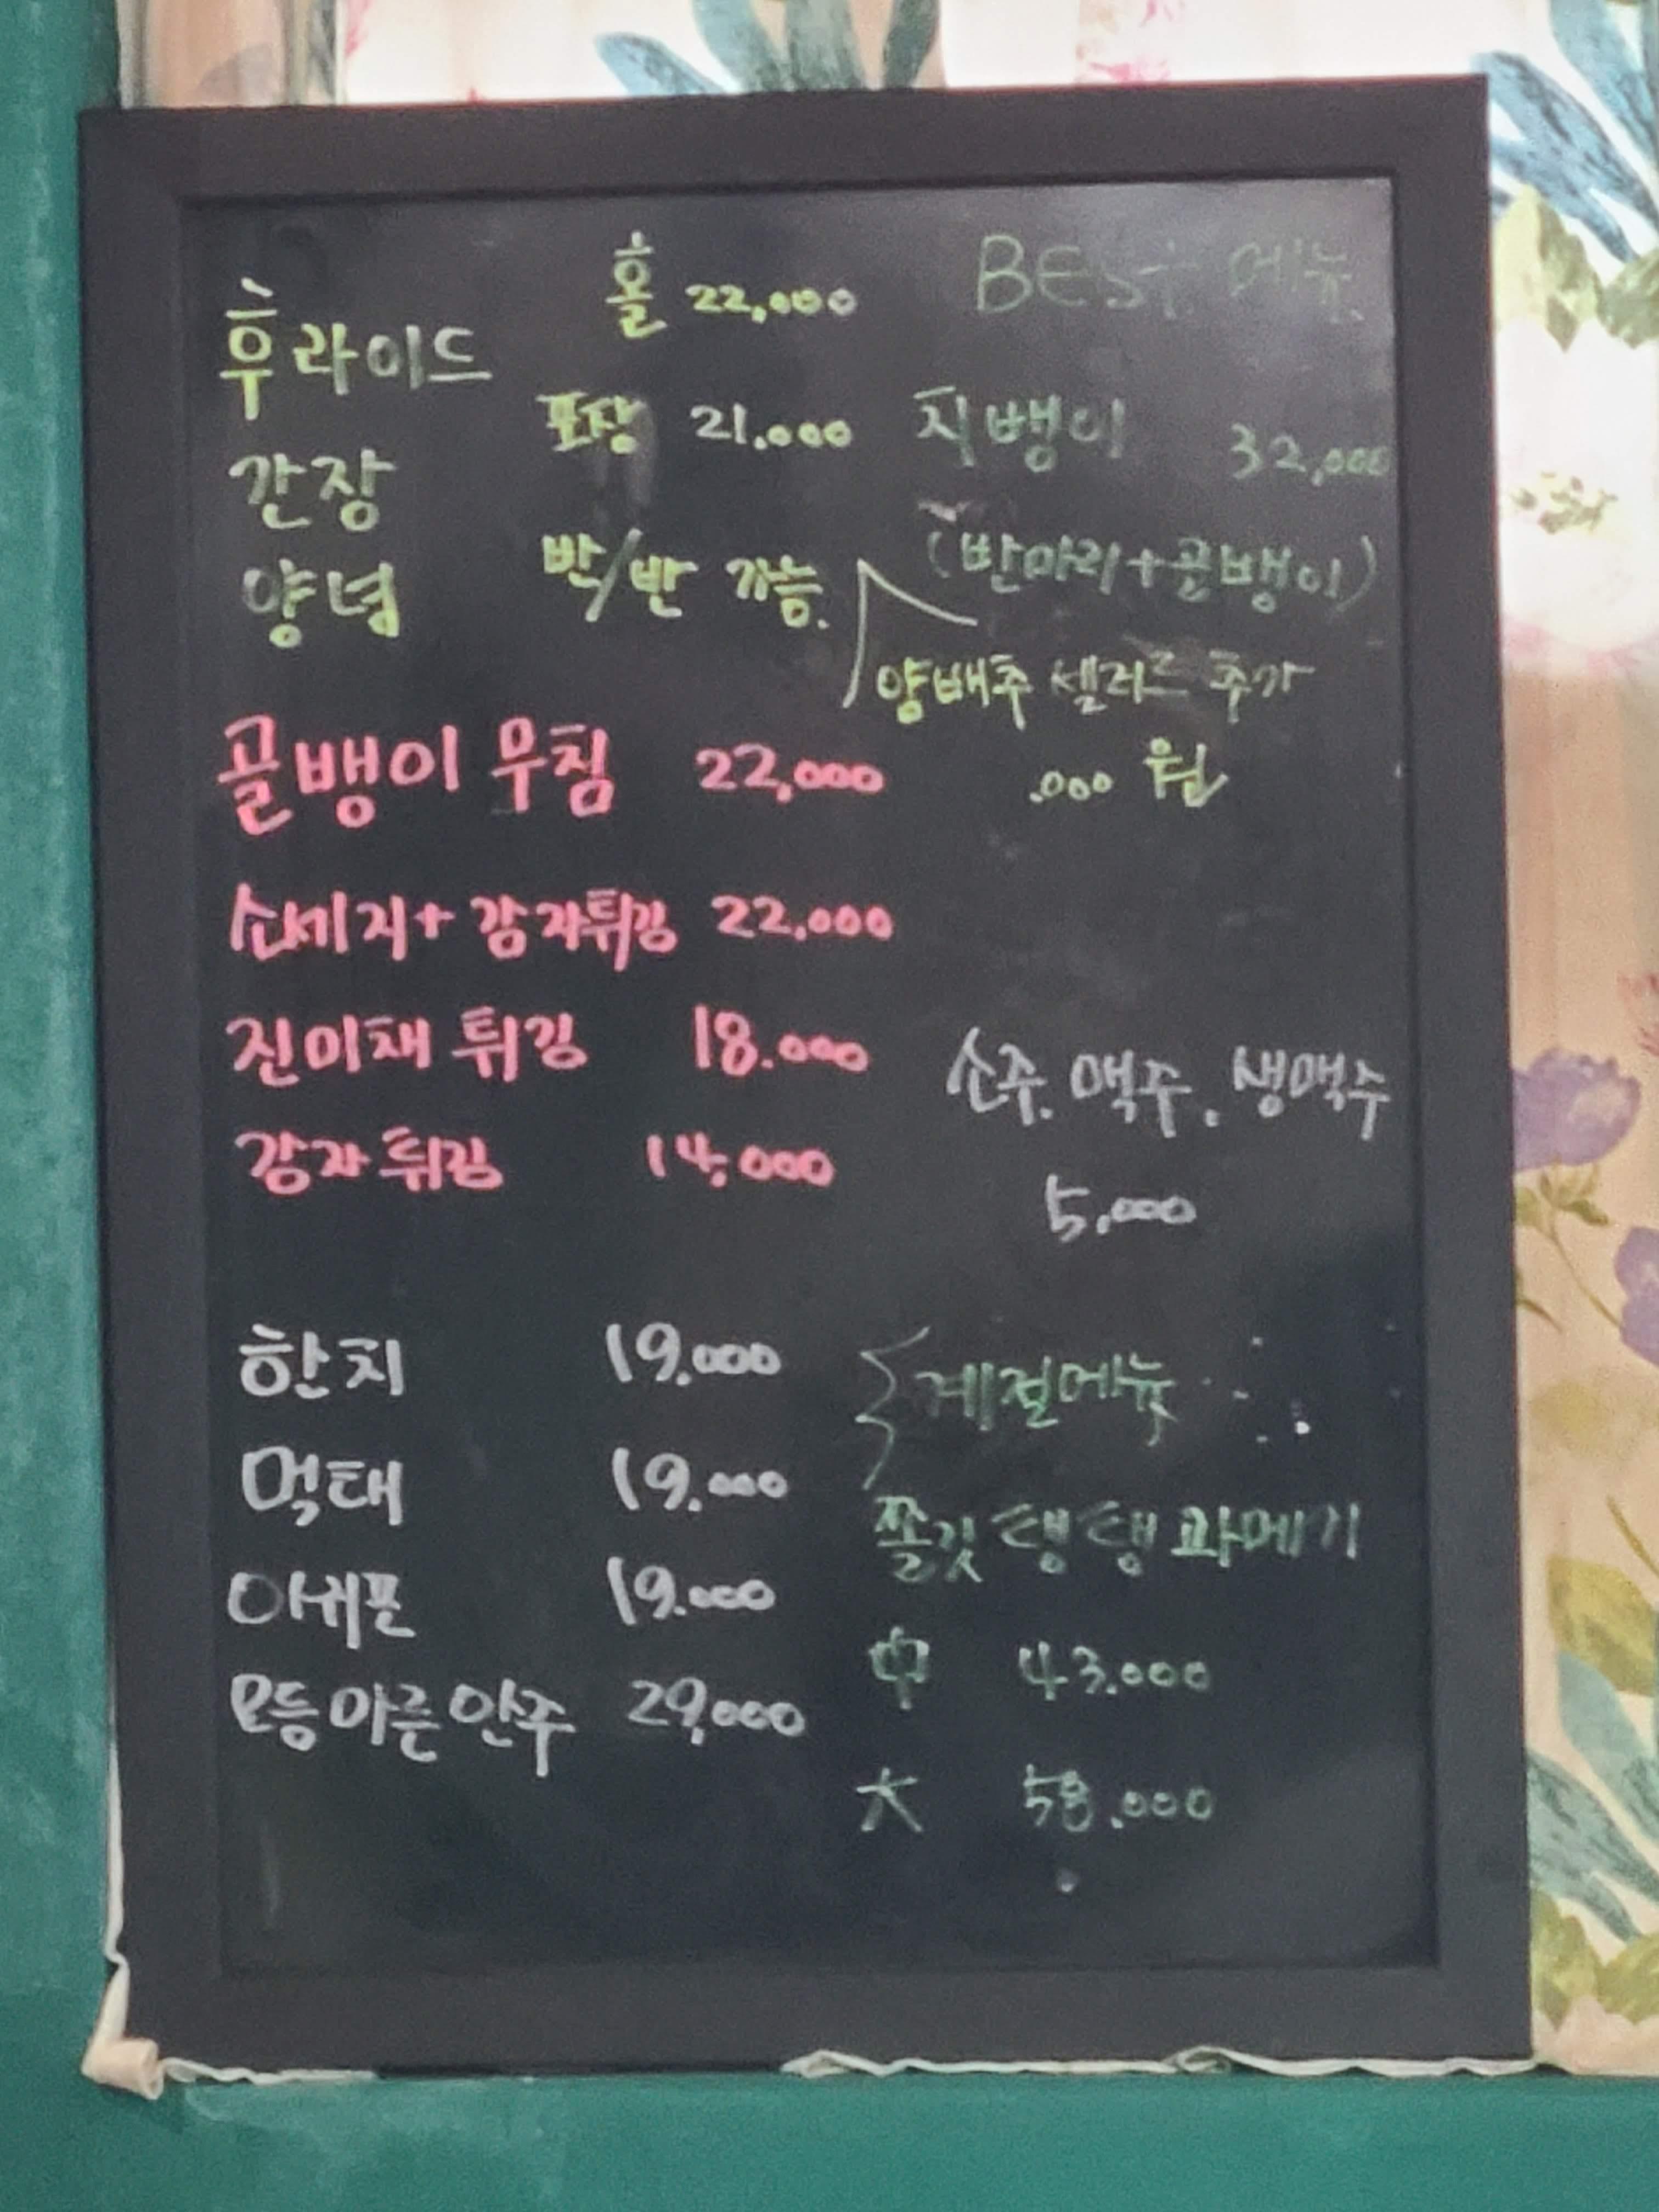 후라이드
간장
양념
홀 22,000
포장 21.000
반/반 가능.
BEST 메뉴
치뱅이 32,000
(반마리+골뱅이)
양배추 셀러드 추가
.000 원
골뱅이 무침 22,000
소세지+감자튀김 22.000
진미채 튀김 18.000
감자튀김 14,000
소주. 맥주. 생맥주
5,000
한치 19.000
먹태 19.000
아귀포 19.000
모듬마른안주 29,000
계절메뉴
쫄깃탱탱과메기
中 43.000
大 58.000